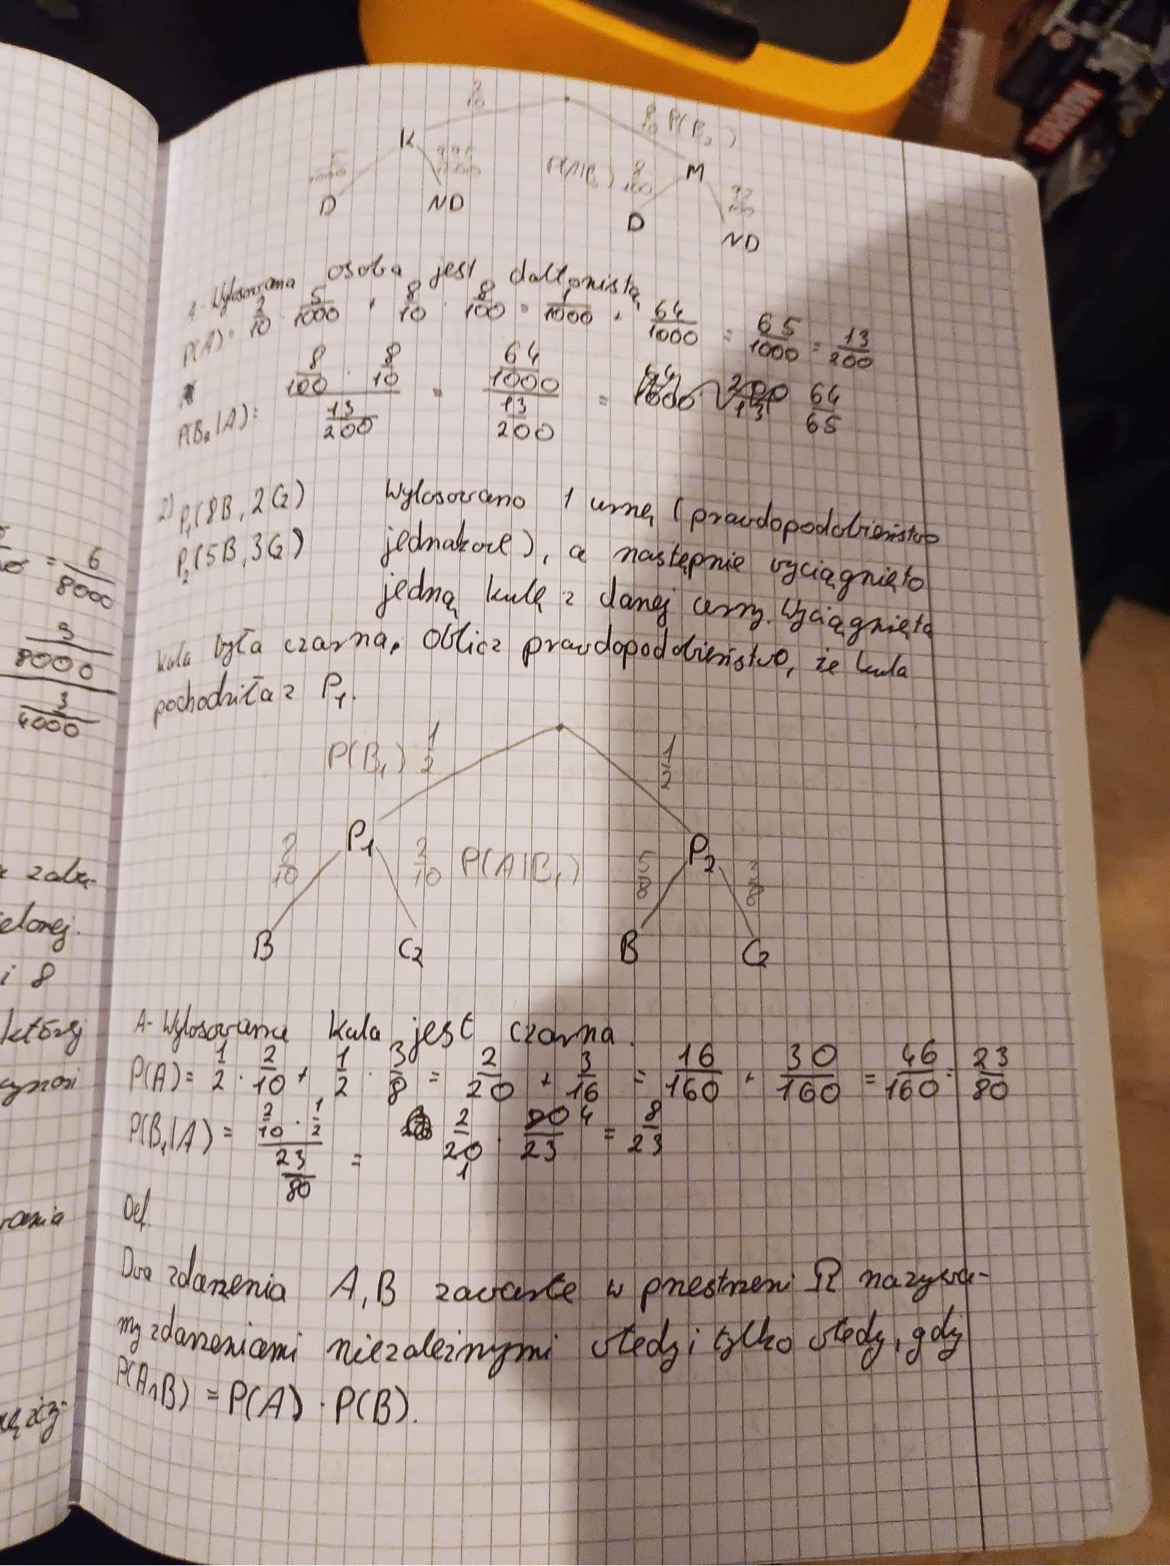 2/10
8/10 P(B₂)
K
M
5/1000 995/1000 P(A|B₂) 8/100 92/100
D ND D ND
A - Wylosowana osoba jest daltonistą
P(A) = 2/10 · 5/1000 + 8/10 · 8/100 = 1/1000 + 64/1000 = 65/1000 = 13/200
P(B₂|A) = (8/100 · 8/10)/(13/200) = (64/1000)/(13/200) = 64/65
2) P₁(8B, 2Cz) Wylosowano 1 urnę (prawdopodobieństwo
P₂(5B, 3Cz) jednakowe), a następnie wyciągnięto
jedną kulę z danej urny. Wyciągnięta
kula była czarna. Oblicz prawdopodobieństwo, że kula
pochodziła z P₁.
P(B₁) 1/2 1/2
P₁ P₂
2/10 P(A|B₁) 5/8 3/8
B Cz B Cz
A - Wylosowana kula jest czarna.
P(A) = 1/2 · 2/10 + 1/2 · 3/8 = 2/20 + 3/16 = 16/160 + 30/160 = 46/160 = 23/80
P(B₁|A) = (2/10 · 1/2)/(23/80) = 2/20 · 80/23 = 8/23
Def.
Dwa zdarzenia A, B zawarte w przestrzeni Ω nazywa-
my zdarzeniami niezależnymi wtedy i tylko wtedy, gdy
P(A∩B) = P(A) · P(B).
= 6/8000
3/4000
elonej.
i 8
której
wynosi